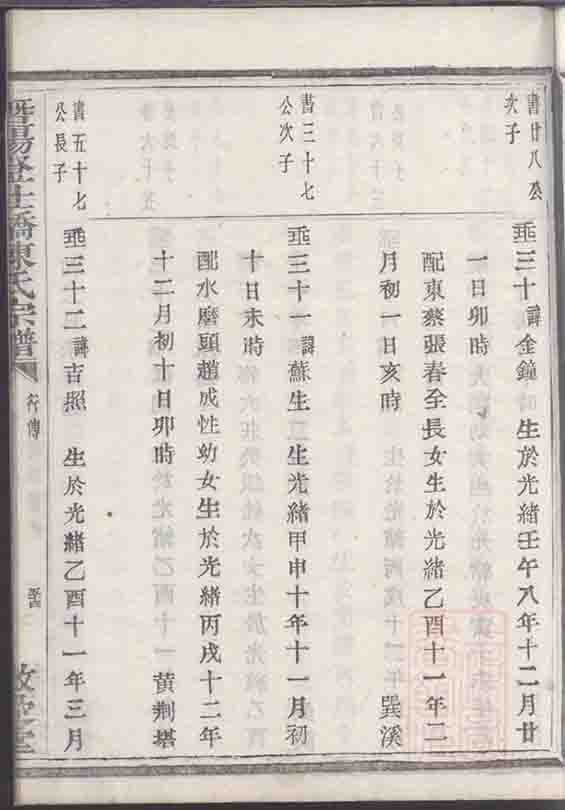 書廿八公
次子
埀三十諱金鐘 生於光緒壬午八年十二月廿
一日卯時
配東蔡張春全長女生於光緒乙酉十一年二
月初一日亥時 巽溪
書三十七
公次子
埀三十一諱蘇生 生光緒甲申十年十一月初
十日未時
配水磨頭趙成性幼女生於光緒丙戌十二年
十二月初十日卯時 黄荆塔
書五十七
公長子
埀三十二諱吉照 生於光緒乙酉十一年三月
暨陽登仕橋陳氏宗譜
行傳